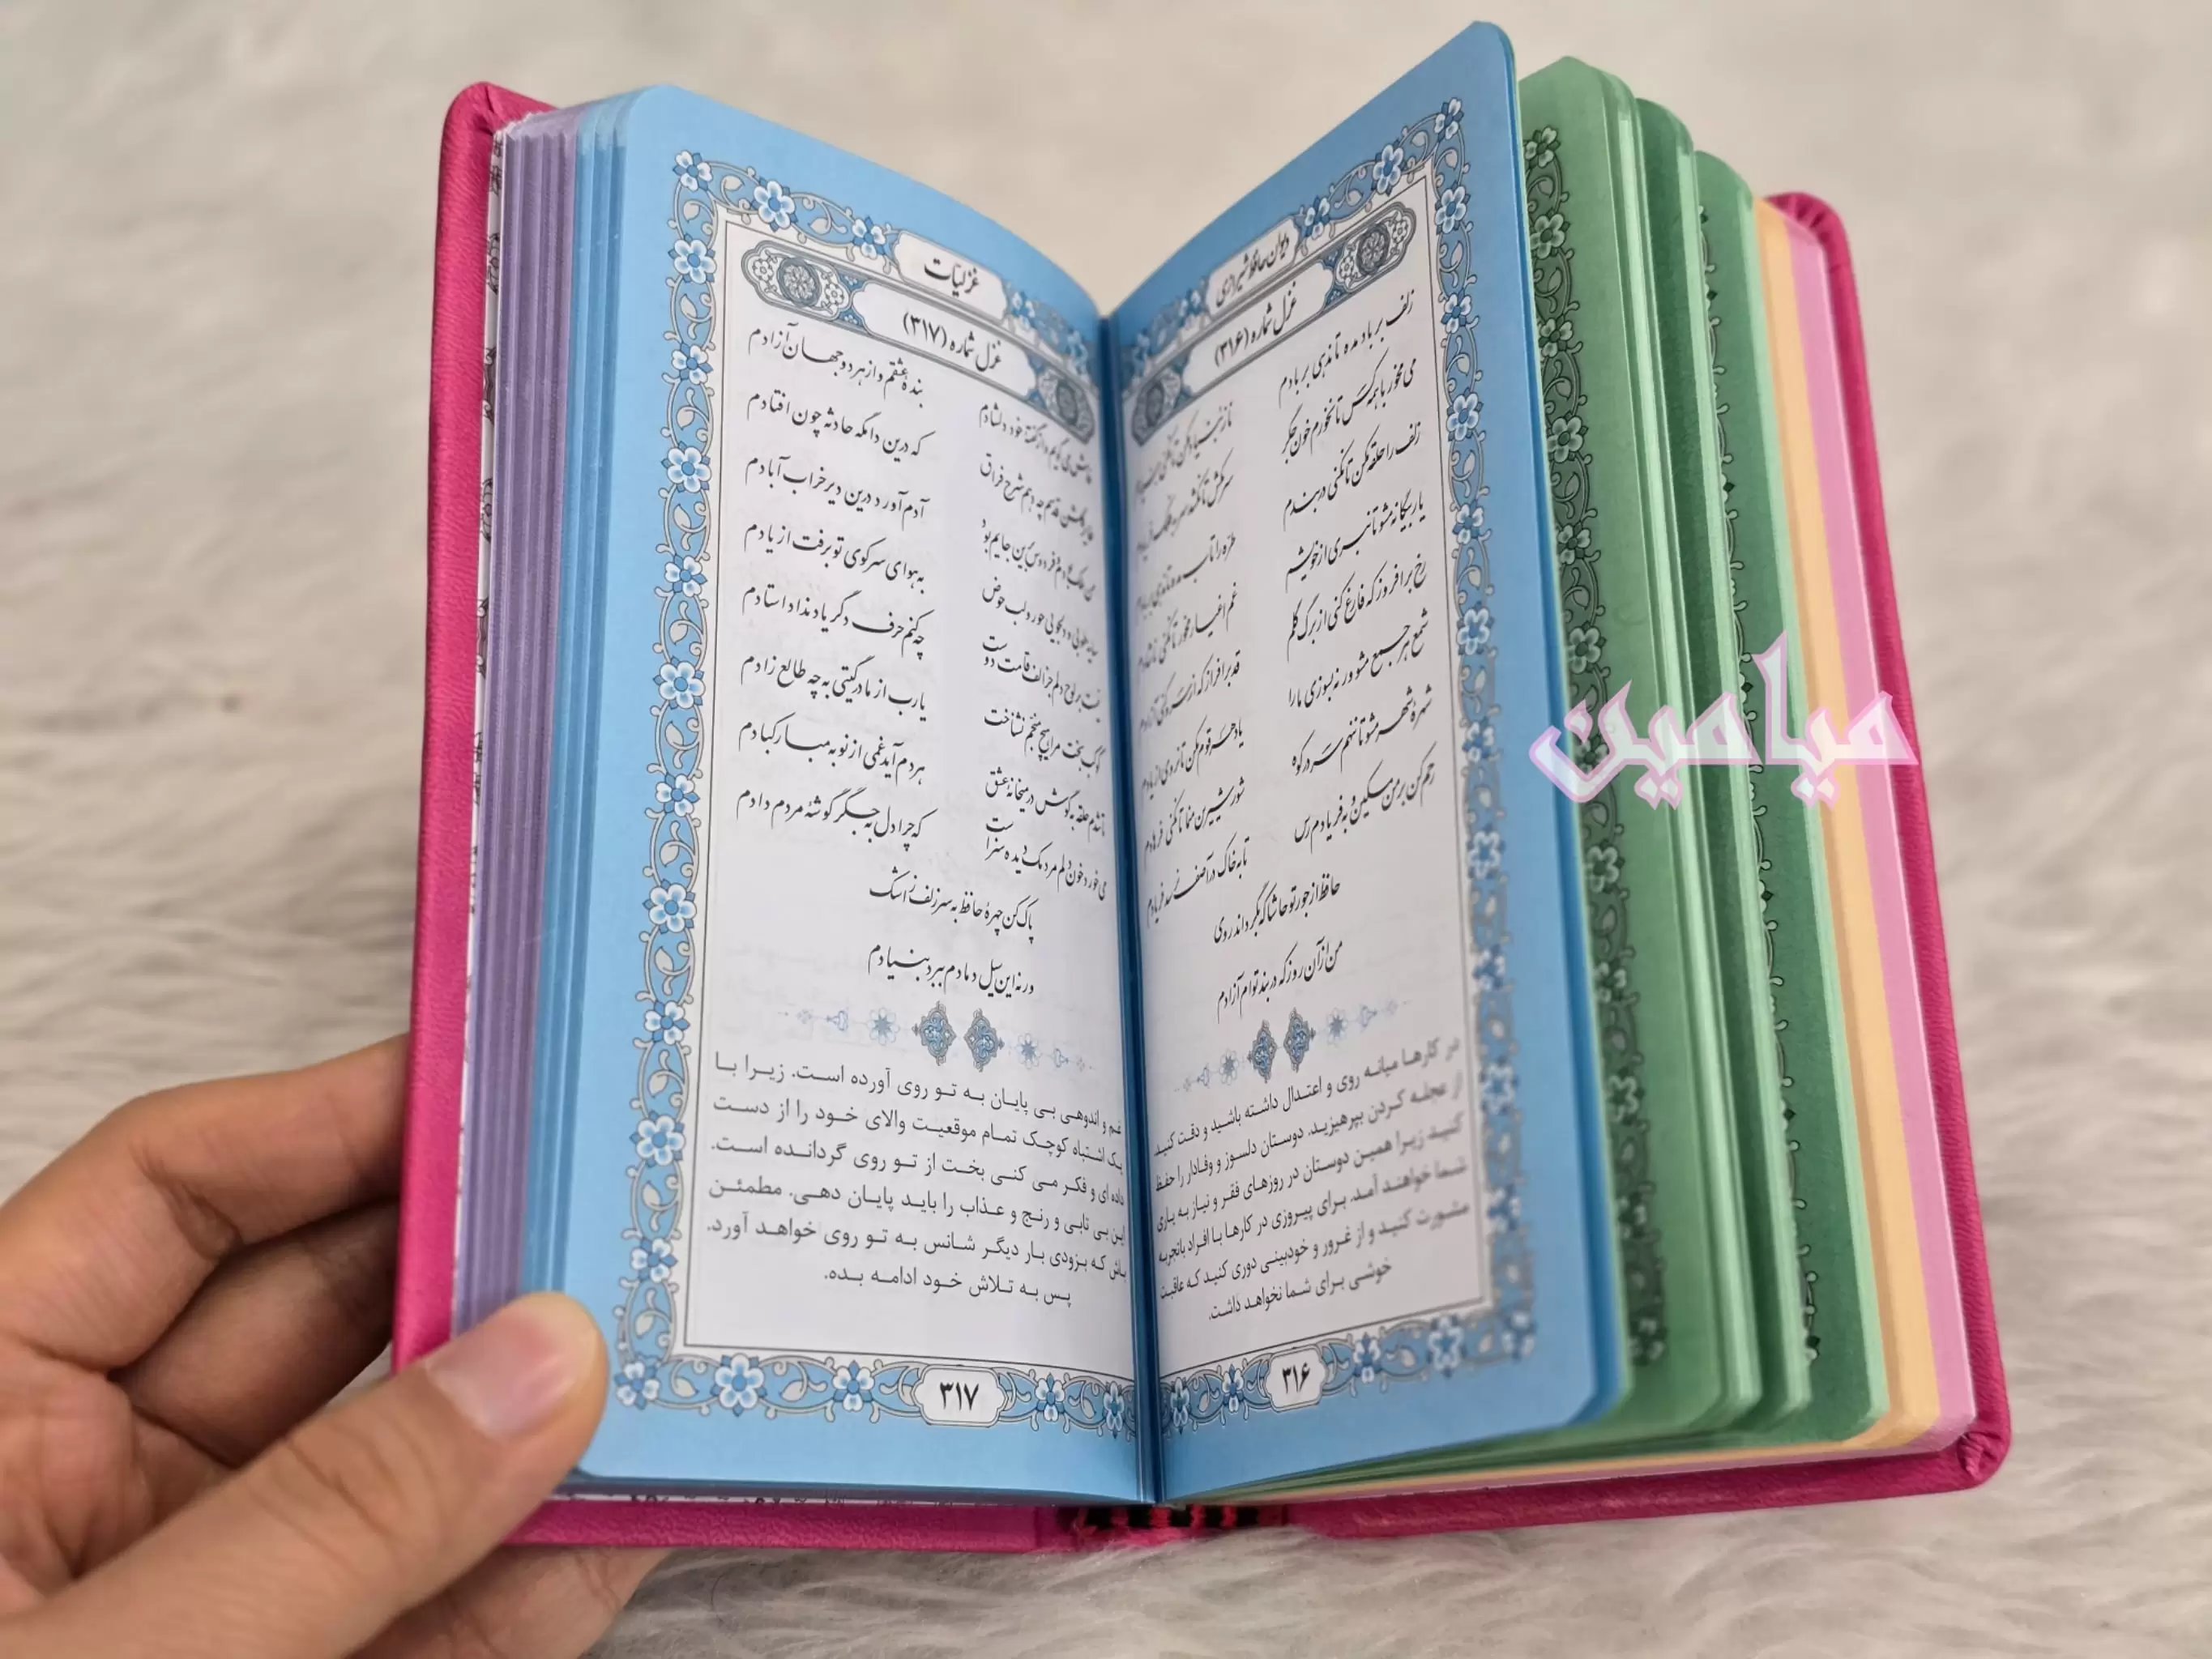 دیوان حافظ شیرازی
غزل شماره (۳۱۶)
زلف بر باد مده تا ندهی بر بادم
ناز بنیاد مکن تا نکنی بنیادم
می مخور با همه کس تا نخورم خون جگر
سر مکش تا نکشد سر به فلک فریادم
زلف را حلقه مکن تا نکنی در بندم
طره را تاب مده تا ندهی بر بادم
یار بیگانه مشو تا نبری از خویشم
غم اغیار مخور تا نکنی ناشادم
رخ بر افروز که فارغ کنی از برگ گلم
قد بر افراز که از سرو کنی آزادم
شمع هر جمع مشو ور نه بسوزی ما را
یاد هر قوم مکن تا نروی از یادم
شهرهٔ شهر مشو تا ننهم سر در کوه
شور شیرین منما تا نکنی فرهادم
رحم کن بر من مسکین و به فریادم رس
تا به خاک در آصف نرسد فریادم
حافظ از جور تو حاشا که بگرداند روی
من از آن روز که در بند توام آزادم
در کارها میانه روی و اعتدال داشته باشید و دقت کنید
از عجله کردن بپرهیزید. دوستان دلسوز و وفادار را حفظ
کنید زیرا همین دوستان در روزهای فقر و نیاز به یاری
شما خواهند آمد. برای پیروزی در کارها با افراد باتجربه
مشورت کنید و از غرور و خودبینی دوری کنید که عاقبت
خوشی برای شما نخواهد داشت.
۳۱۶
غزلیّات
غزل شماره (۳۱۷)
فاش می گویم و از گفتهٔ خود دلشادم
بندهٔ عشقم و از هر دو جهان آزادم
طایر گلشن قدسم چه دهم شرح فراق
که درین دامگه حادثه چون افتادم
من ملک بودم و فردوس برین جایم بود
آدم آورد درین دیر خراب آبادم
سایه طوبی و دلجویی حور و لب حوض
به هوای سر کوی تو برفت از یادم
نیست بر لوح دلم جز الف قامت دوست
چه کنم حرف دگر یاد نداد استادم
کوکب بخت مرا هیچ منجم نشناخت
یارب از مادر گیتی به چه طالع زادم
تا شدم حلقه به گوش در میخانهٔ عشق
هر دم آید غمی از نو به مبارکبادم
می خورد خون دلم مردمک دیده سزاست
که چرا دل به جگر گوشهٔ مردم دادم
پاک کن چهرهٔ حافظ به سر زلف ز اشک
ور نه این سیل دمادم ببرد بنیادم
غم و اندوهی بی پایان به تو روی آورده است. زیرا با
یک اشتباه کوچک تمام موقعیت والای خود را از دست
داده ای و فکر می کنی بخت از تو روی گردانده است.
این بی تابی و رنج و عذاب را باید پایان دهی. مطمئن
باش که بزودی بار دیگر شانس به تو روی خواهد آورد.
پس به تلاش خود ادامه بده.
۳۱۷
میامین